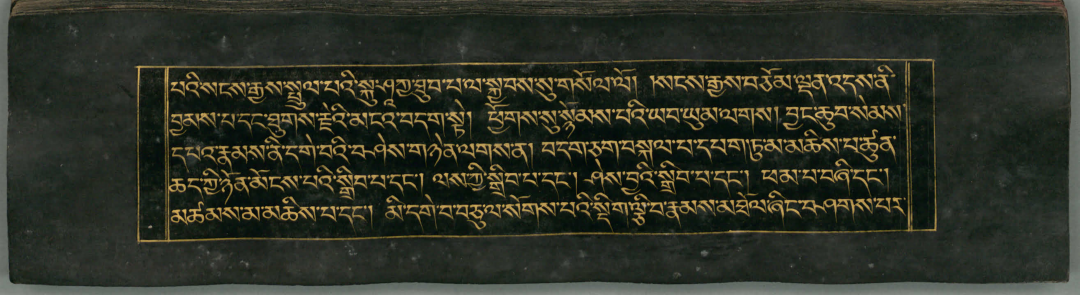 པའི་སངས་རྒྱས་སྤྲུལ་པའི་སྐུ་ཤཱཀྱ་ཐུབ་པ་ལ་སྐྱབས་སུ་གསོལ་ལོ། །སངས་རྒྱས་བཅོམ་ལྡན་འདས་ནི་
བྱམས་པ་དང་ཐུགས་རྗེའི་མངའ་བདག་སྟེ། ཕྱོགས་སུ་སྙོམས་པའི་ཡབ་ཡུམ་ལགས། བྱང་ཆུབ་སེམས་
དཔའ་རྣམས་ནི་དགེ་བའི་བཤེས་གཉེན་ལགས་ན། བདག་ཅག་བསྐལ་པ་དཔག་ཏུ་མ་མཆིས་པ་ཚུན་
ཆད་ཀྱི་ཉོན་མོངས་པའི་སྒྲིབ་པ་དང་། ལས་ཀྱི་སྒྲིབ་པ་དང་། ཤེས་བྱའི་སྒྲིབ་པ་དང་། ཕམ་པ་བཞི་དང་།
མཚམས་མ་མཆིས་པ་དང་། མི་དགེ་བ་བཅུ་ལ་སོགས་པའི་སྡིག་ལྕི་བ་རྣམས་མཐོལ་ཞིང་བཤགས་པར་